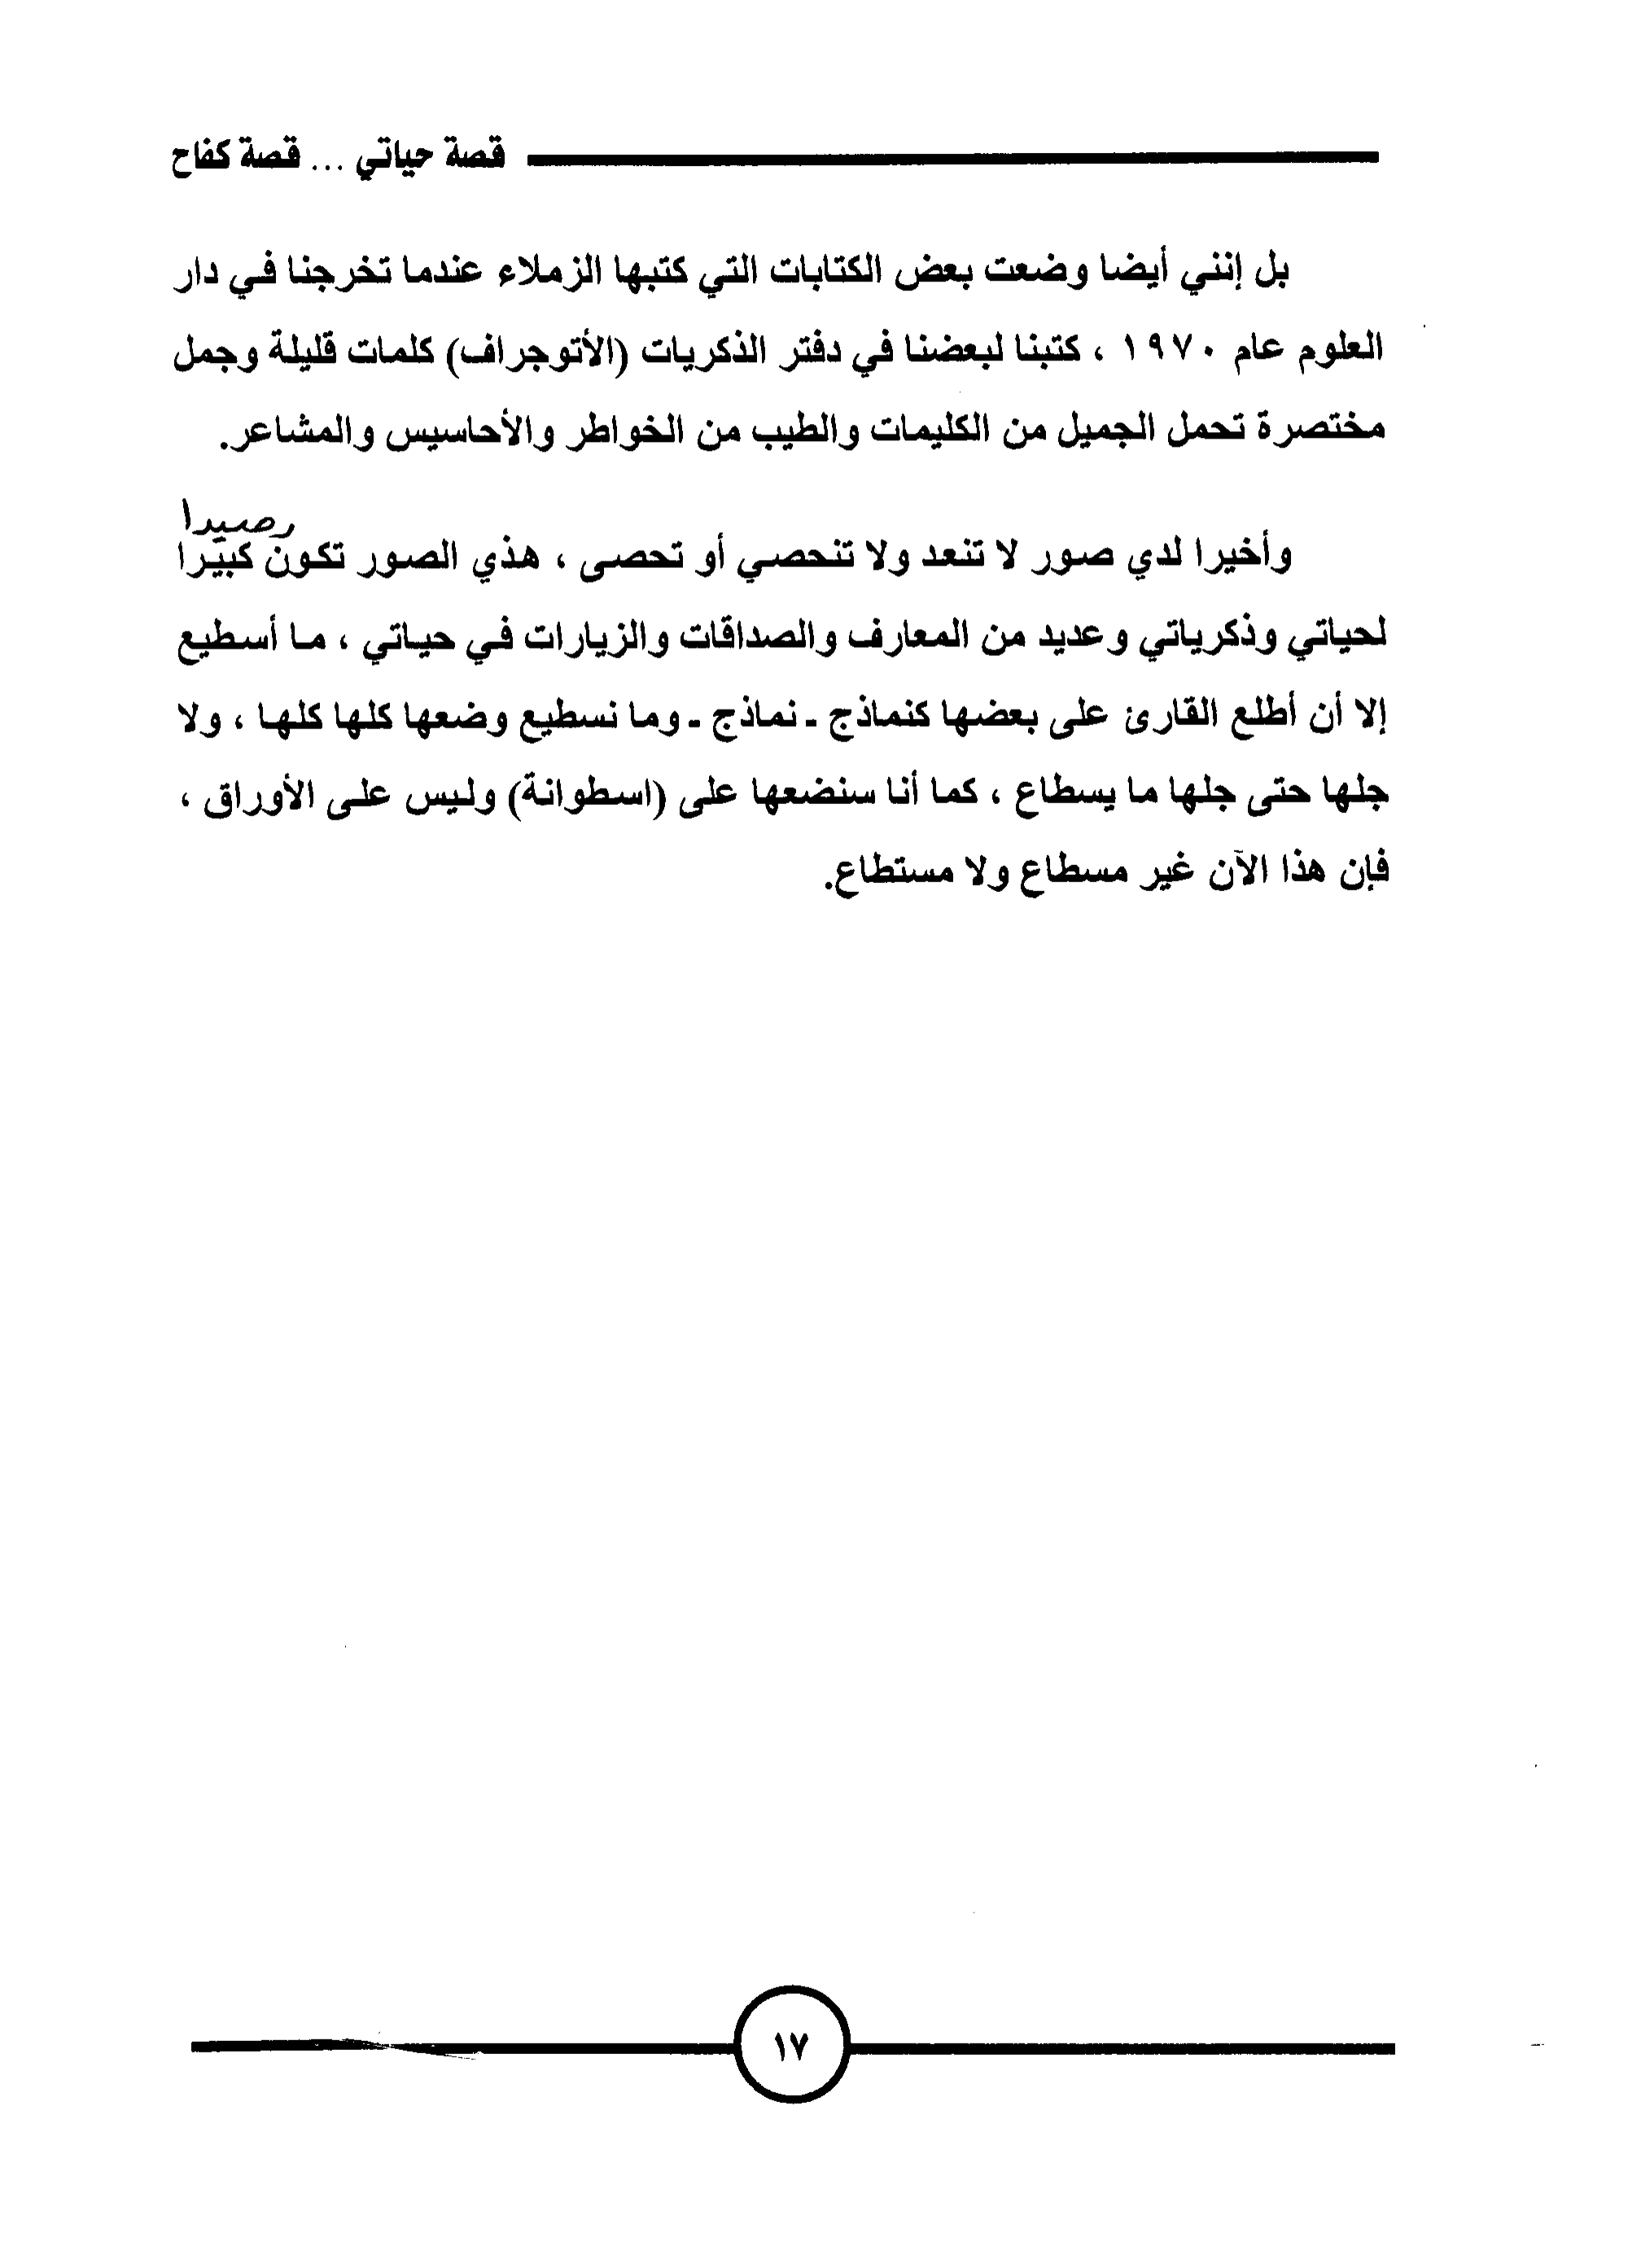 قصة حياتي ... قصة كفاح
بل إنني أيضا وضعت بعض الكتابات التي كتبها الزملاء عندما تخرجنا في دار
العلوم عام ١٩٧٠ ، كتبنا لبعضنا في دفتر الذكريات (الأتوجراف) كلمات قليلة وجمل
مختصرة تحمل الجميل من الكليمات والطيب من الخواطر والأحاسيس والمشاعر.
رصيدا
وأخيرا لدي صور لا تنعد ولا تنحصي أو تحصى ، هذي الصور تكون كبيرا
لحياتي وذكرياتي وعديد من المعارف والصداقات والزيارات في حياتي ، ما أسطيع
إلا أن أطلع القارئ على بعضها كنماذج ـ نماذج ـ وما نسطيع وضعها كلها كلها ، ولا
جلها حتى جلها ما يسطاع ، كما أنا سنضعها على (اسطوانة) وليس على الأوراق ،
فإن هذا الآن غير مسطاع ولا مستطاع.
١٧